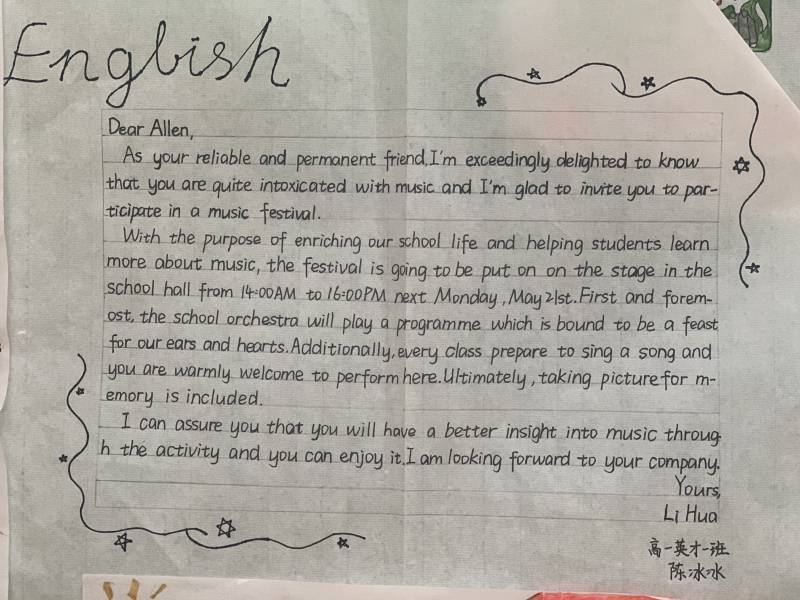 English
Dear Allen,
As your reliable and permanent friend,I'm exceedingly delighted to know
that you are quite intoxicated with music and I'm glad to invite you to par-
ticipate in a music festival.
With the purpose of enriching our school life and helping students learn
more about music, the festival is going to be put on on the stage in the
school hall from 14:00AM to 16:00PM next Monday, May 21st. First and forem-
ost, the school orchestra will play a programme which is bound to be a feast
for our ears and hearts. Additionally, every class prepare to sing a song and
you are warmly welcome to perform here. Ultimately, taking picture for m-
emory is included.
I can assure you that you will have a better insight into music throug
h the activity and you can enjoy it. I am looking forward to your company.
Yours,
Li Hua
高一英才一班
陈冰冰